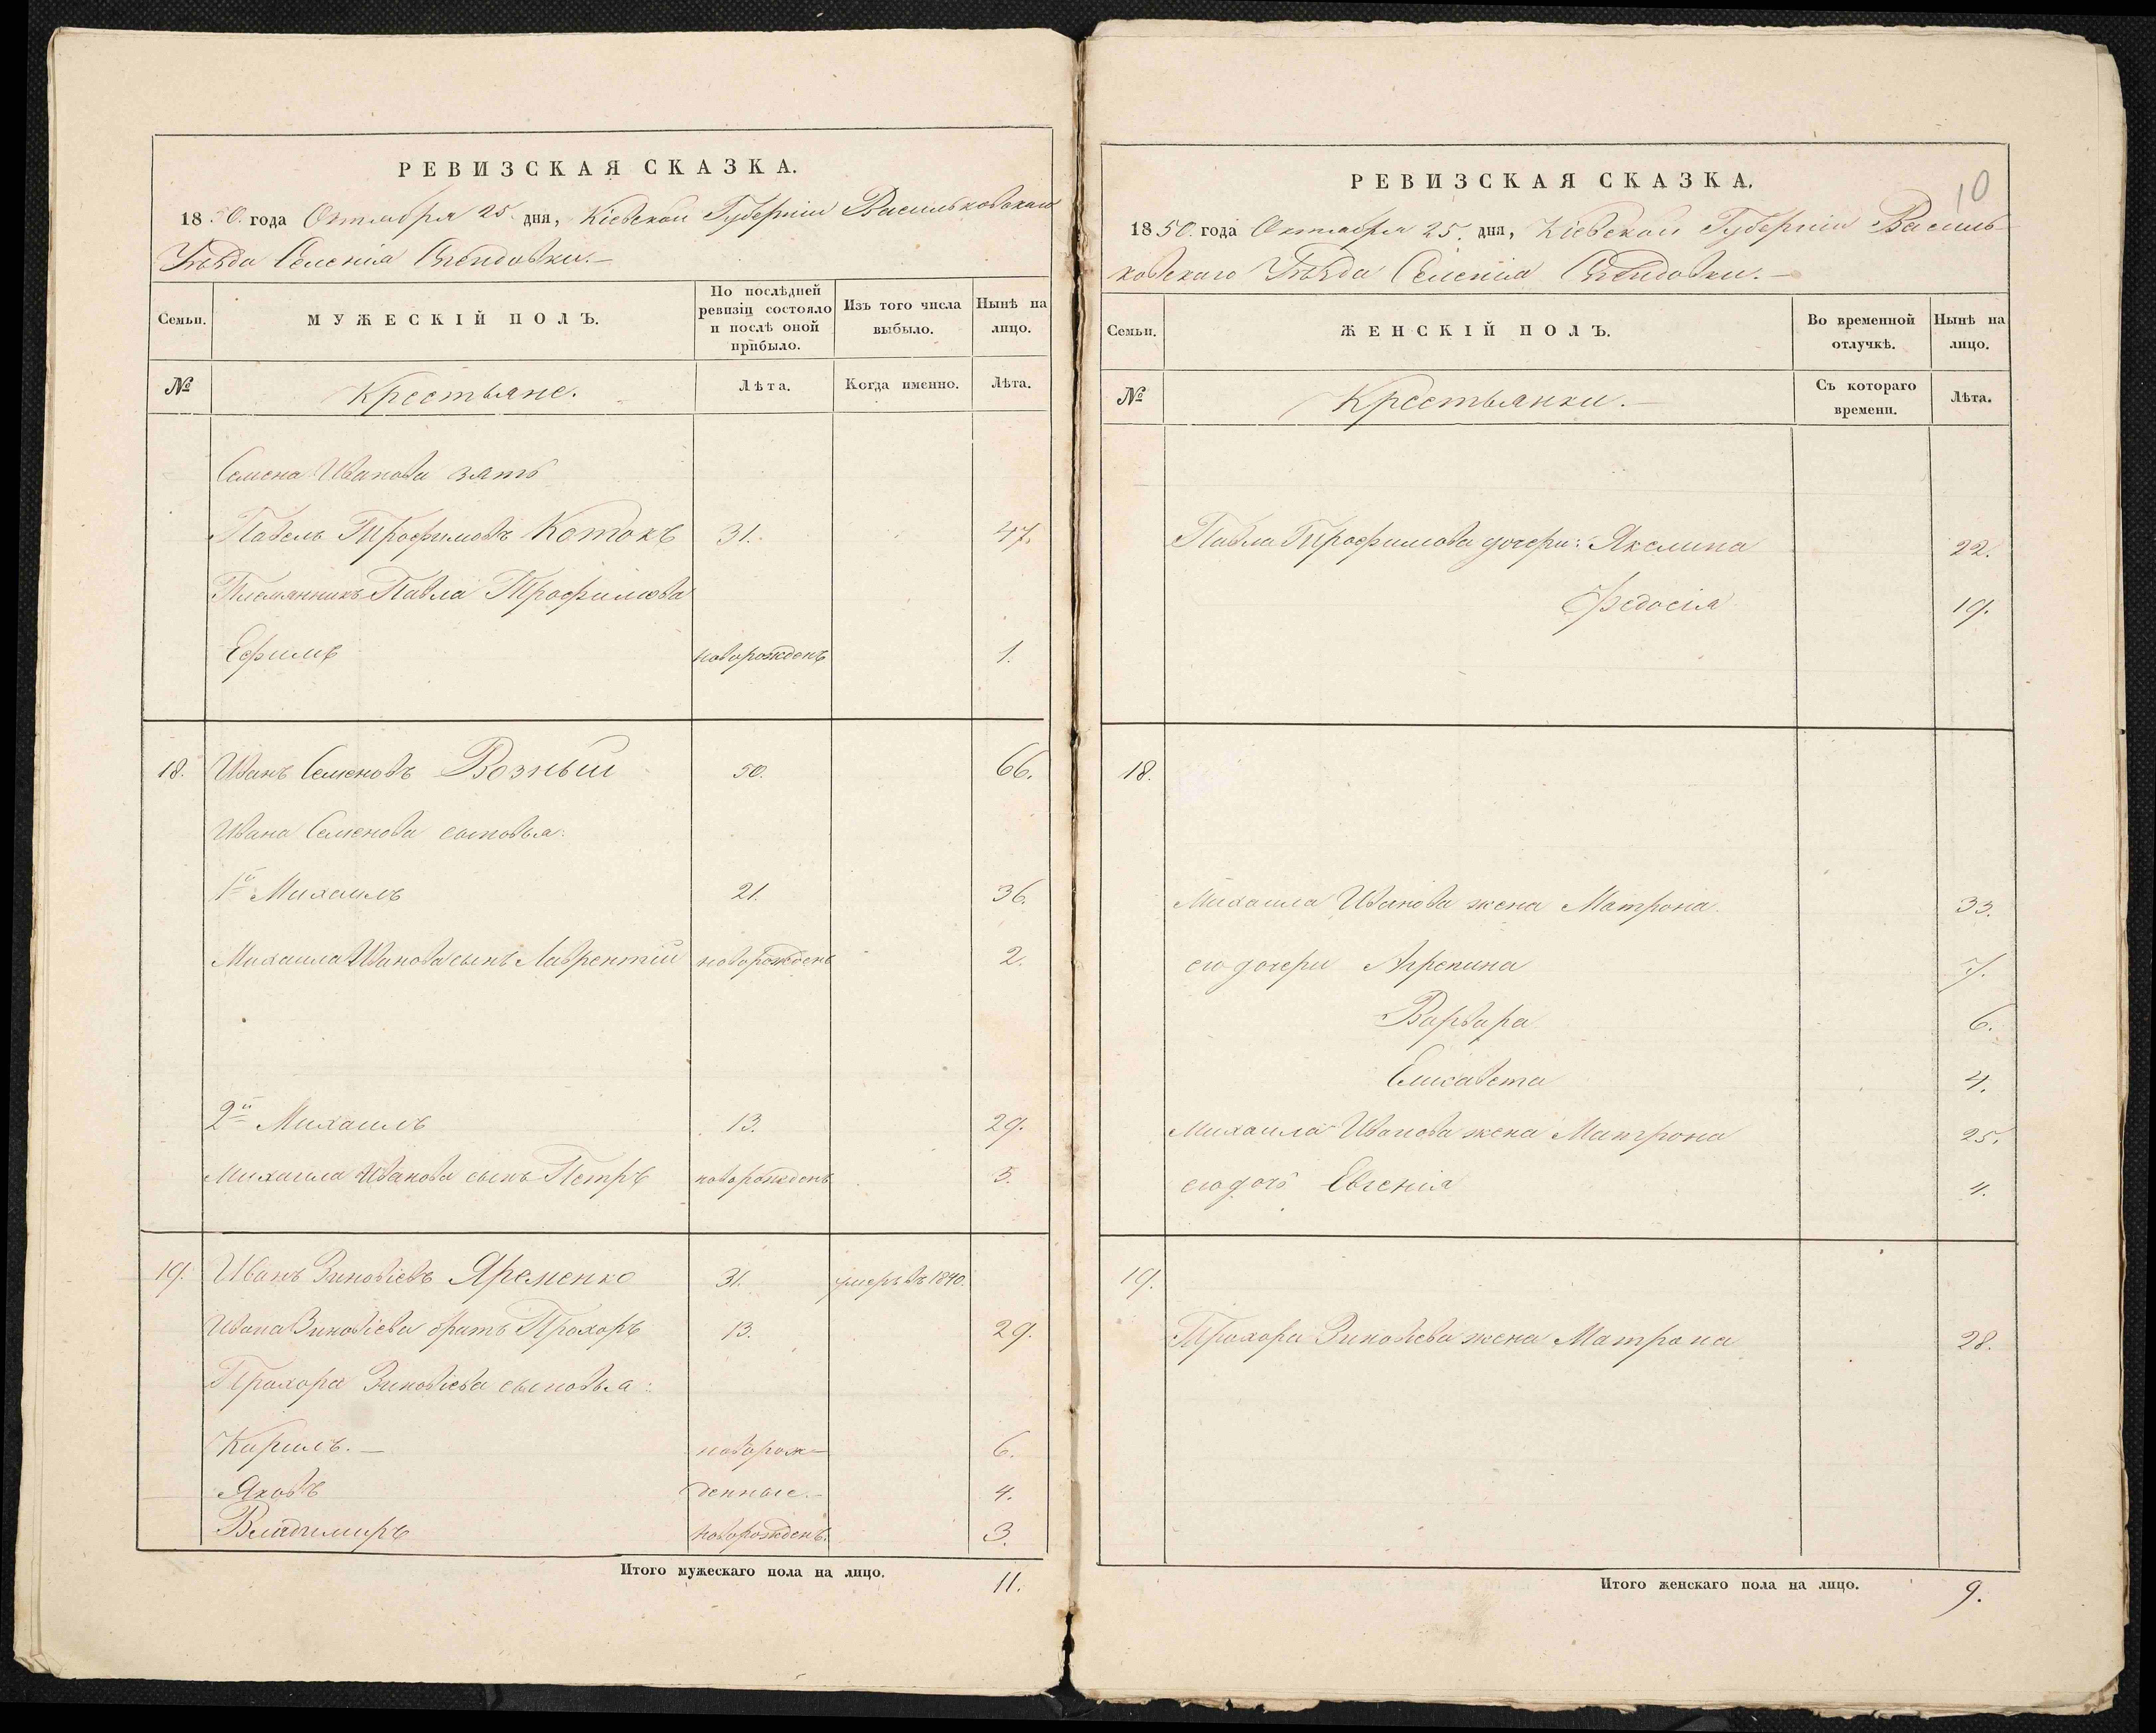 РЕВИЗСКАЯ СКАЗКА.
18 50. года Октября 25. дня, Кіевской Губерніи Васильковскаго
Уѣзда Селенія
Семьи.
МУЖЕСКІЙ ПОЛЪ.
По послѣдней ревизіи состояло и послѣ оной прибыло.
Изъ того числа выбыло.
Нынѣ на лицо.
№
Крестьяне.
Лѣта.
Когда именно.
Лѣта.
Семена Иванова зять
Павелъ Трофимовъ Котокъ 31. 47.
Племянникъ Павла Трофимова
Ефимъ новорожденъ 1.
18. Иванъ Семеновъ Возный 50. 66.
Ивана Семенова сыновья:
1й Михаилъ 21. 36.
Михаила Иванова сынъ Лаврентій новорожденъ 2.
2й Михаилъ 13. 29.
Михаила Иванова сынъ Петръ новорожденъ 5.
19. Иванъ Зиновіевъ Яременко 31. умеръ въ 1840.
Ивана Зиновіева братъ Прохоръ 13. 29.
Прохора Зиновіева сыновья:
Кирилъ. — новорож= 6.
Яковъ денные. — 4.
Владимиръ новорожденъ. 3.
Итого мужескаго пола на лицо. 11.
10
РЕВИЗСКАЯ СКАЗКА.
18 50. года Октября 25. дня, Кіевской Губерніи Василь
ковскаго Уѣзда Селенія
Семьи.
ЖЕНСКІЙ ПОЛЪ.
Во временной отлучкѣ.
Нынѣ на лицо.
№
Крестьянки. —
Съ котораго времени.
Лѣта.
Павла Трофимова дочери: Якелина 22.
Федосія 19.
18.
Михаила Иванова жена Матрона. 33.
его дочери Агрепина 7.
Варвара 6.
Елисавета 4.
Михаила Иванова жена Матрона 25.
его дочь Евгенія 4.
19.
Прохора Зиновіева жена Матрона 28.
Итого женскаго пола на лицо. 9.